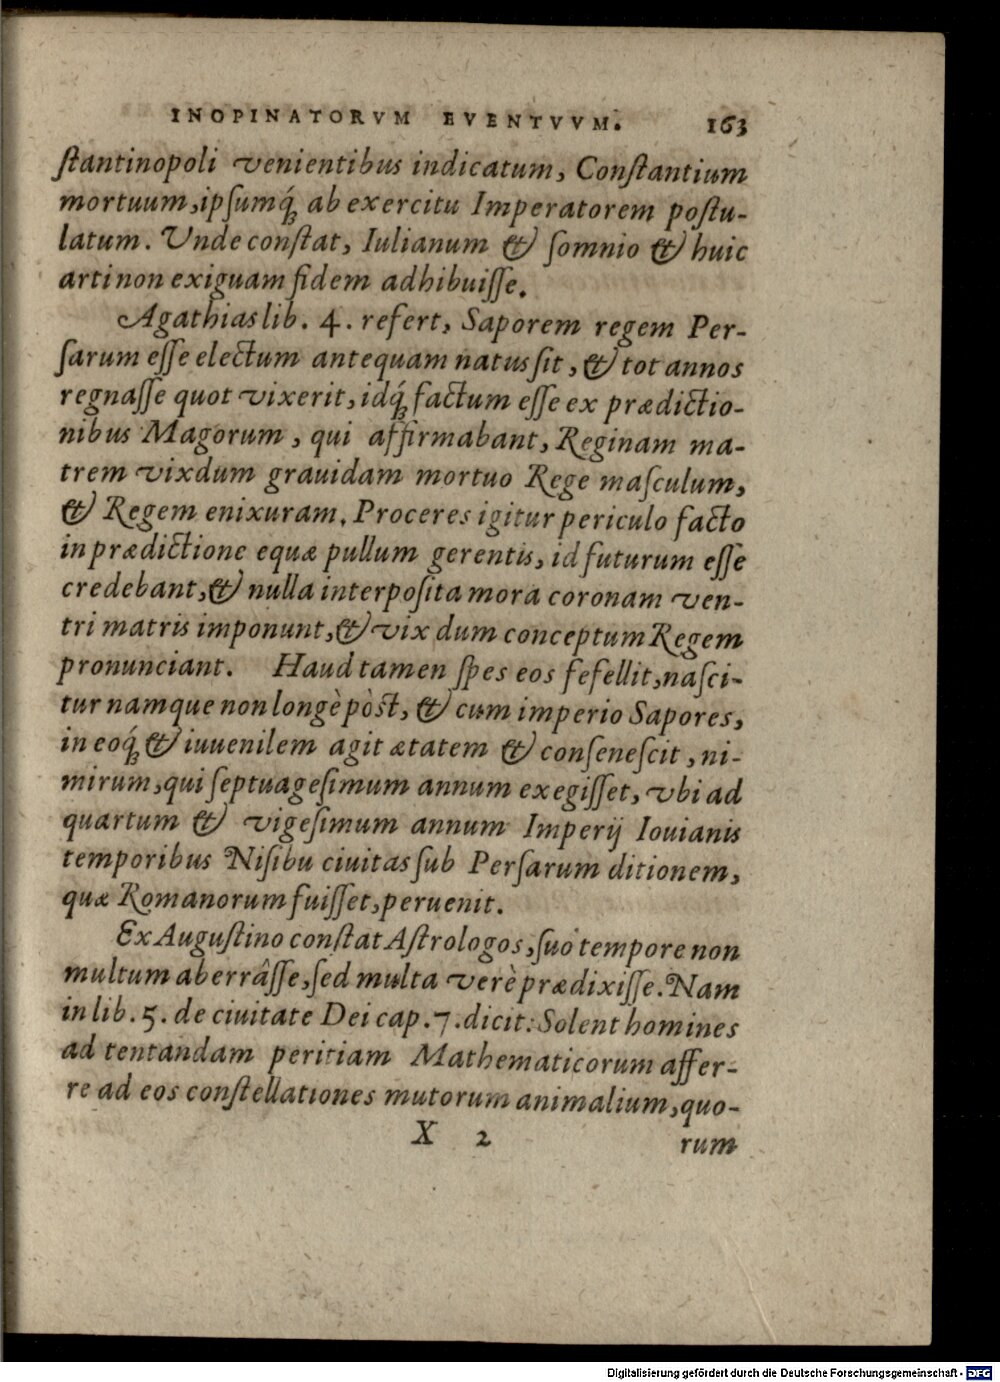 INOPINATORVM EVENTVVM. 163
ſtantinopoli venientibus indicatum, Conſtantium
mortuum, ipſumq́; ab exercitu Imperatorem poſtu-
latum. Unde conſtat, Iulianum & ſomnio & huic
arti non exiguam fidem adhibuiſſe.
Agathias lib. 4. refert, Saporem regem Per-
ſarum eſſe electum antequam natus ſit, & tot annos
regnaſſe quot vixerit, idq́; factum eſſe ex prædictio-
nibus Magorum, qui affirmabant, Reginam ma-
trem vixdum grauidam mortuo Rege maſculum,
& Regem enixuram. Proceres igitur periculo facto
in prædictione equæ pullum gerentis, id futurum eſſe
credebant, & nulla interpoſita mora coronam ven-
tri matris imponunt, & vix dum conceptum Regem
pronunciant. Haud tamen ſpes eos fefellit, naſci-
tur namque non longè pòst, & cum imperio Sapores,
in eoq́; & iuuenilem agit ætatem & conſeneſcit, ni-
mirum, qui ſeptuageſimum annum exegiſſet, vbi ad
quartum & vigeſimum annum Imperij Iouianis
temporibus Niſibu ciuitas ſub Perſarum ditionem,
quæ Romanorum fuiſſet, peruenit.
Ex Auguſtino conſtat Aſtrologos, ſuo tempore non
multum aberrâſſe, ſed multa verè prædixiſſe. Nam
in lib. 5. de ciuitate Dei cap. 7. dicit: Solent homines
ad tentandam peritiam Mathematicorum affer-
re ad eos conſtellationes mutorum animalium, quo-
X 2 rum
Digitalisierung gefördert durch die Deutsche Forschungsgemeinschaft - DFG